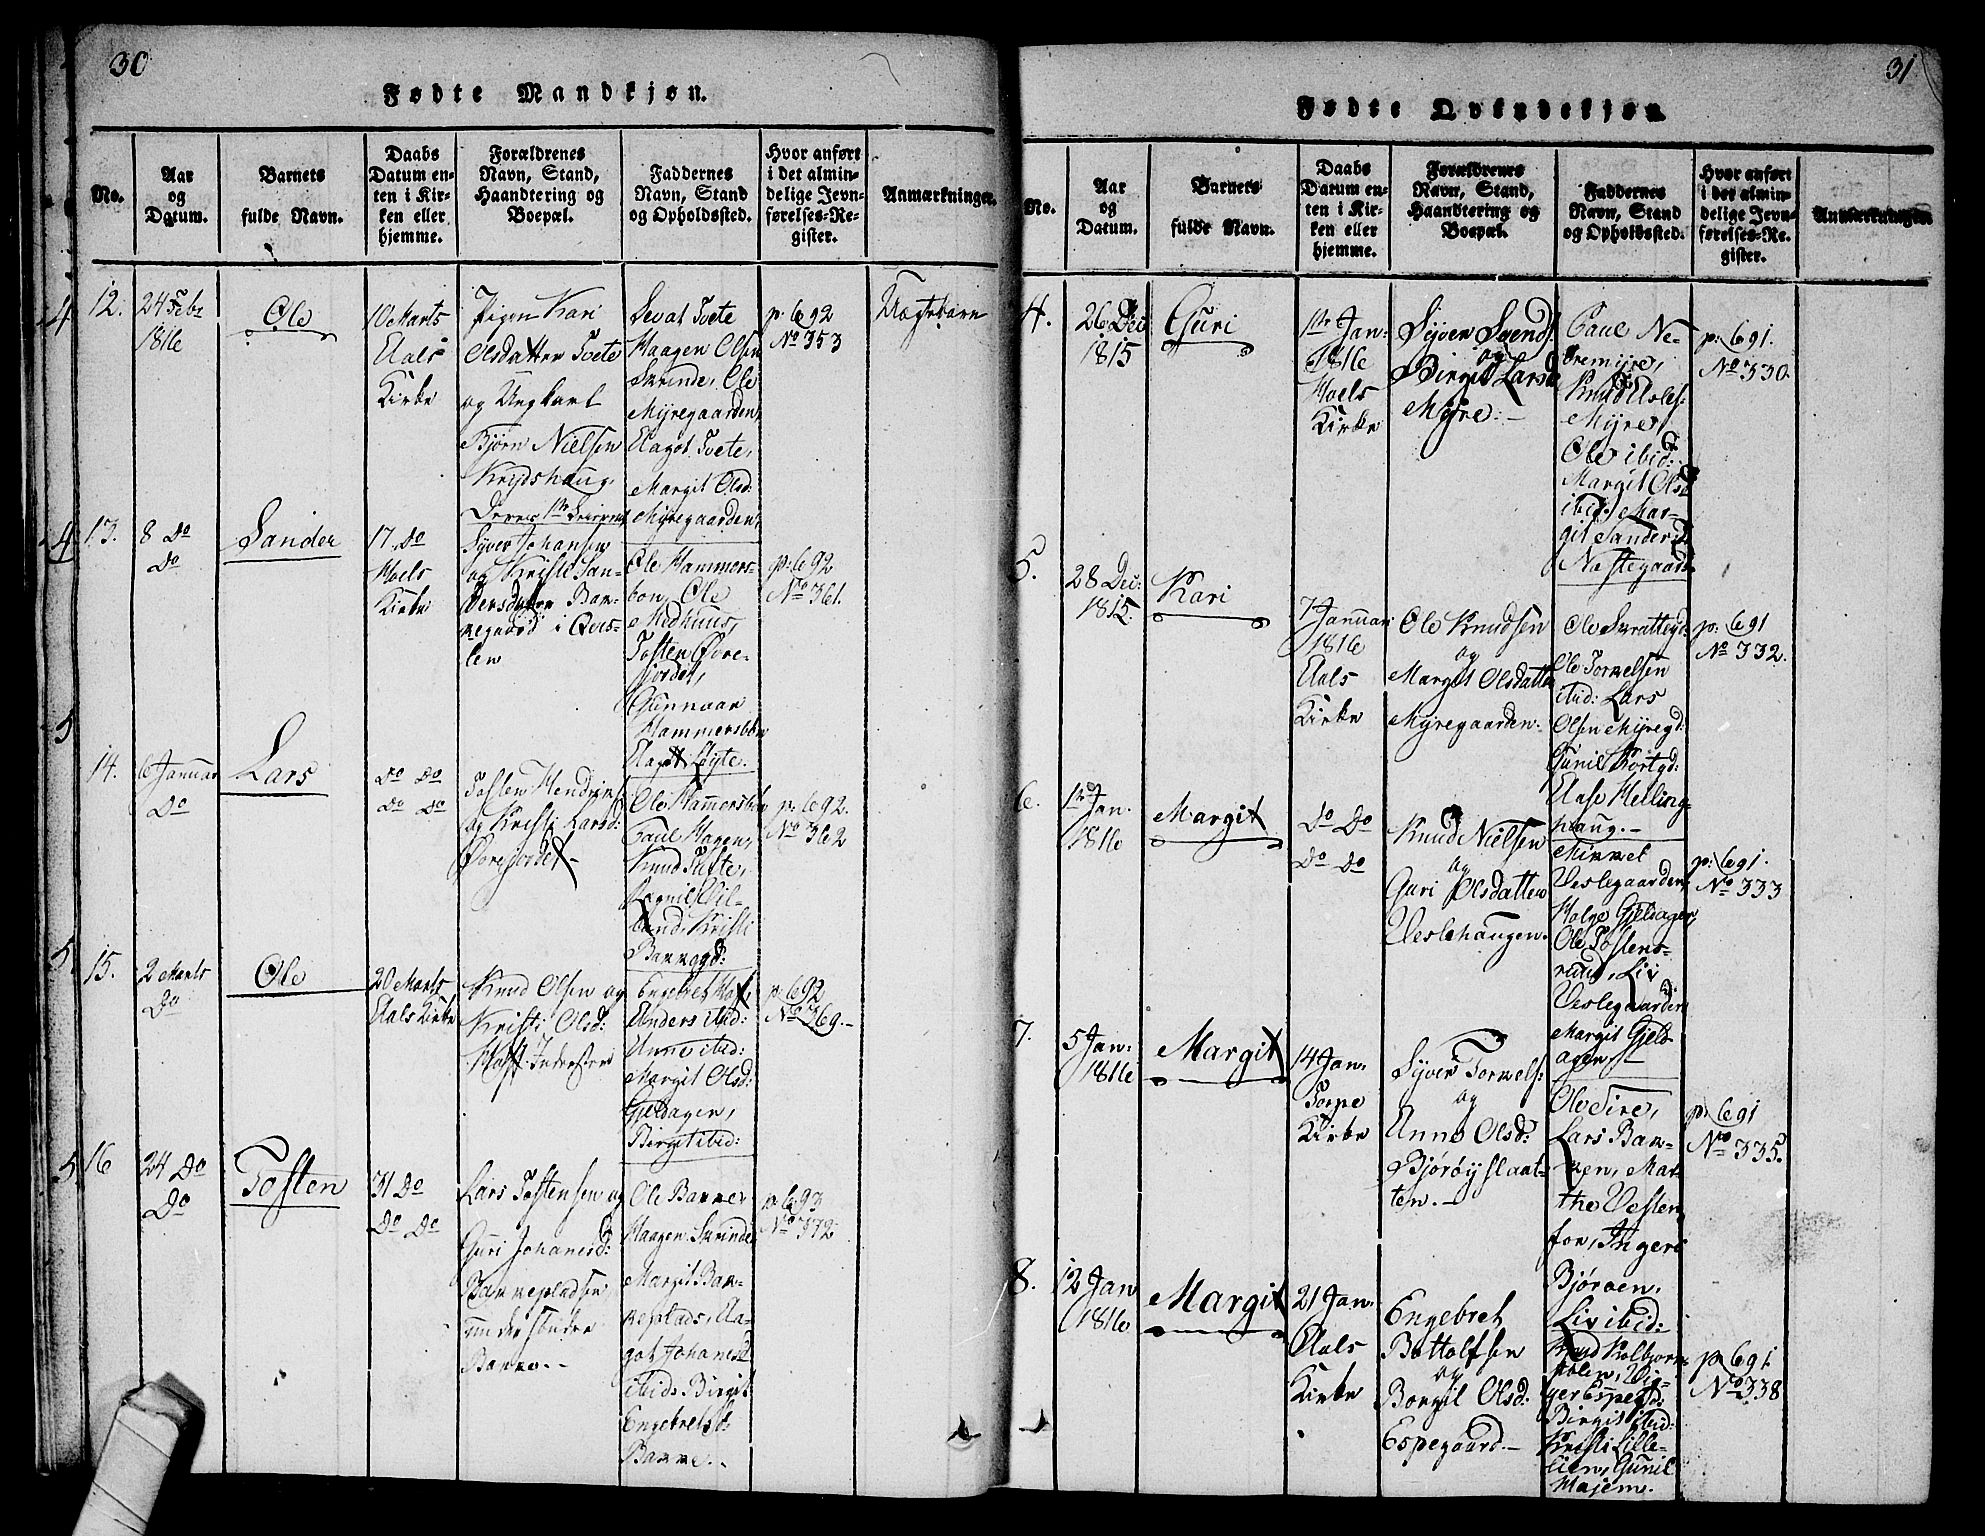 30
Fødte Mandkjøn.
No.
Aar
og
Datum.
Barnets
fulde Navn.
Daabs
Datum en-
ten i Kir-
ken eller
hjemme.
Forældrenes
Navn, Stand,
Haandtering og
Boepæl.
Faddernes
Navn, Stand
og Opholdssted.
Hvor anført
i det almin-
delige Jevn-
førelses-Re-
gister.
Anmærkninger.
12.
24 Febr
1816
Ole
10 Marts
Aals
Kirke
Pigen Kari
Olsdatter Tvete
og Ungkarl
Bjørn Nielsen
Krydshaug.
Deres 1te
Sevat Tvete
Haagen Olsen
Skrinde, Ole
Myregaarden,
Aagot Tvete,
Margit Olsd:
Myregaarden,
p: 692
No 353
Uægtebarn
13.
8 Do
Do
Sander
17. Do
Hoels
Kirke
Syver Johansen
og Kristi San-
dersdatter Bak-
kegaard i
Ole Hammers-
bøn, Ole
Medhuus,
Tosten Øvre-
jordet,
Gunnaar
Hammersbøn
Aagot
p: 692
No 361.
14.
6 Januar
Do
Lars
Do Do
Do Do
Tosten Hendriks:
og Kristi Larsd:
Øvrejordet -
Ole Hammersbøn
Paul Hagen,
Knud Tufte,
Ragnil Vil-
land, Kristi
Bakkegd:
p: 692.
No 362
15.
2 Marts
Do
Ole
20 Marts
Aals Kirke
Knud Olsen og
Kristi Olsd:
Engebret
Anders ibid:
Anne ibid:
Margit Olsd:
Gjeldagen,
Birgit ibid:
p: 692
No 369. -
16
24 Do
Do
Tosten
31 Do
Do Do
Lars Tostensen og
Guri Johanesd:
Bakkepladsen
under
Bakke. -
Ole Bakke,
Haagen Skrinde,
Margit Bak-
keplads, Aa-
got Johanesd
ibid: Birgit
Engebretsd:
Bakke. -
p: 693
No 372:
31
Fødte Qvindekjøn.
No.
Aar
og
Datum.
Barnets
fulde Navn.
Daabs
Datum en-
ten i Kir-
ken eller
hjemme.
Forældrenes
Navn, Stand,
Haandtering og
Boepæl.
Faddernes
Navn, Stand
og Opholdssted.
Hvor anført
i det almin-
delige Jevn-
førelses-Re-
gister.
Anmærkninger
4.
26 Dec
1815
Guri
1te Jan:
1816
Hoels
Kirke
Syver Svends:
og
Birgit Larsd
Myre. -
Paul Ne-
dremyre,
Knud
Myre,
Ole ibid:
Margit Olsd
ibid: Mar-
git Sandersd
p: 691.
No 330.
5.
28 Dec:
1815.
Kari
7 Januari
1816
Aals
Kirke
Ole Knudsen
og
Margit Olsdatter
Myregaarden.
Ole Skrattegd:
Ole Torkelsen
ibid: Lars
Olsen Myregd:
Gunil
Aase Helling-
haug. -
p: 691
No 332.
6.
1te Jan.
1816
Margit
Do Do
Do Do
Knud Nielsen
og
Guri Olsdatter
Veslehaugen.
Mikkel
Veslegaarden,
Helge Gjeldager,
Ole Tostens-
rud, Liv
Veslegaarden
Margit Gjeld-
agen, -
p: 691.
No 333
7.
5 Jan:
1816
Margit
14 Jan.
Torpe
Kirke
Syver Torkels:
og
Anne Olsd:
Bjørøyslaat-
ten. -
Ole Sire,
Lars Bak-
ken, Mar-
the Vesten-
for, Ingeri
Bjøroen,
Liv ibid:
p: 691
No 335.
8.
12 Jan
1816
Margit
21 Jan.
Aals
Kirke
Engebret
Bottolfsen
og
Borgil Olsd:
Espegaard. -
Knud Kolbjørns-
Birgit ibid:
Kristi Lille-
lien, Gunil
p: 691
No 338